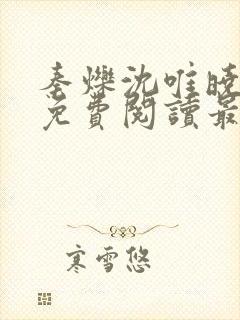 秦爍沈唯曉
免費閱讀最
寒雪悠